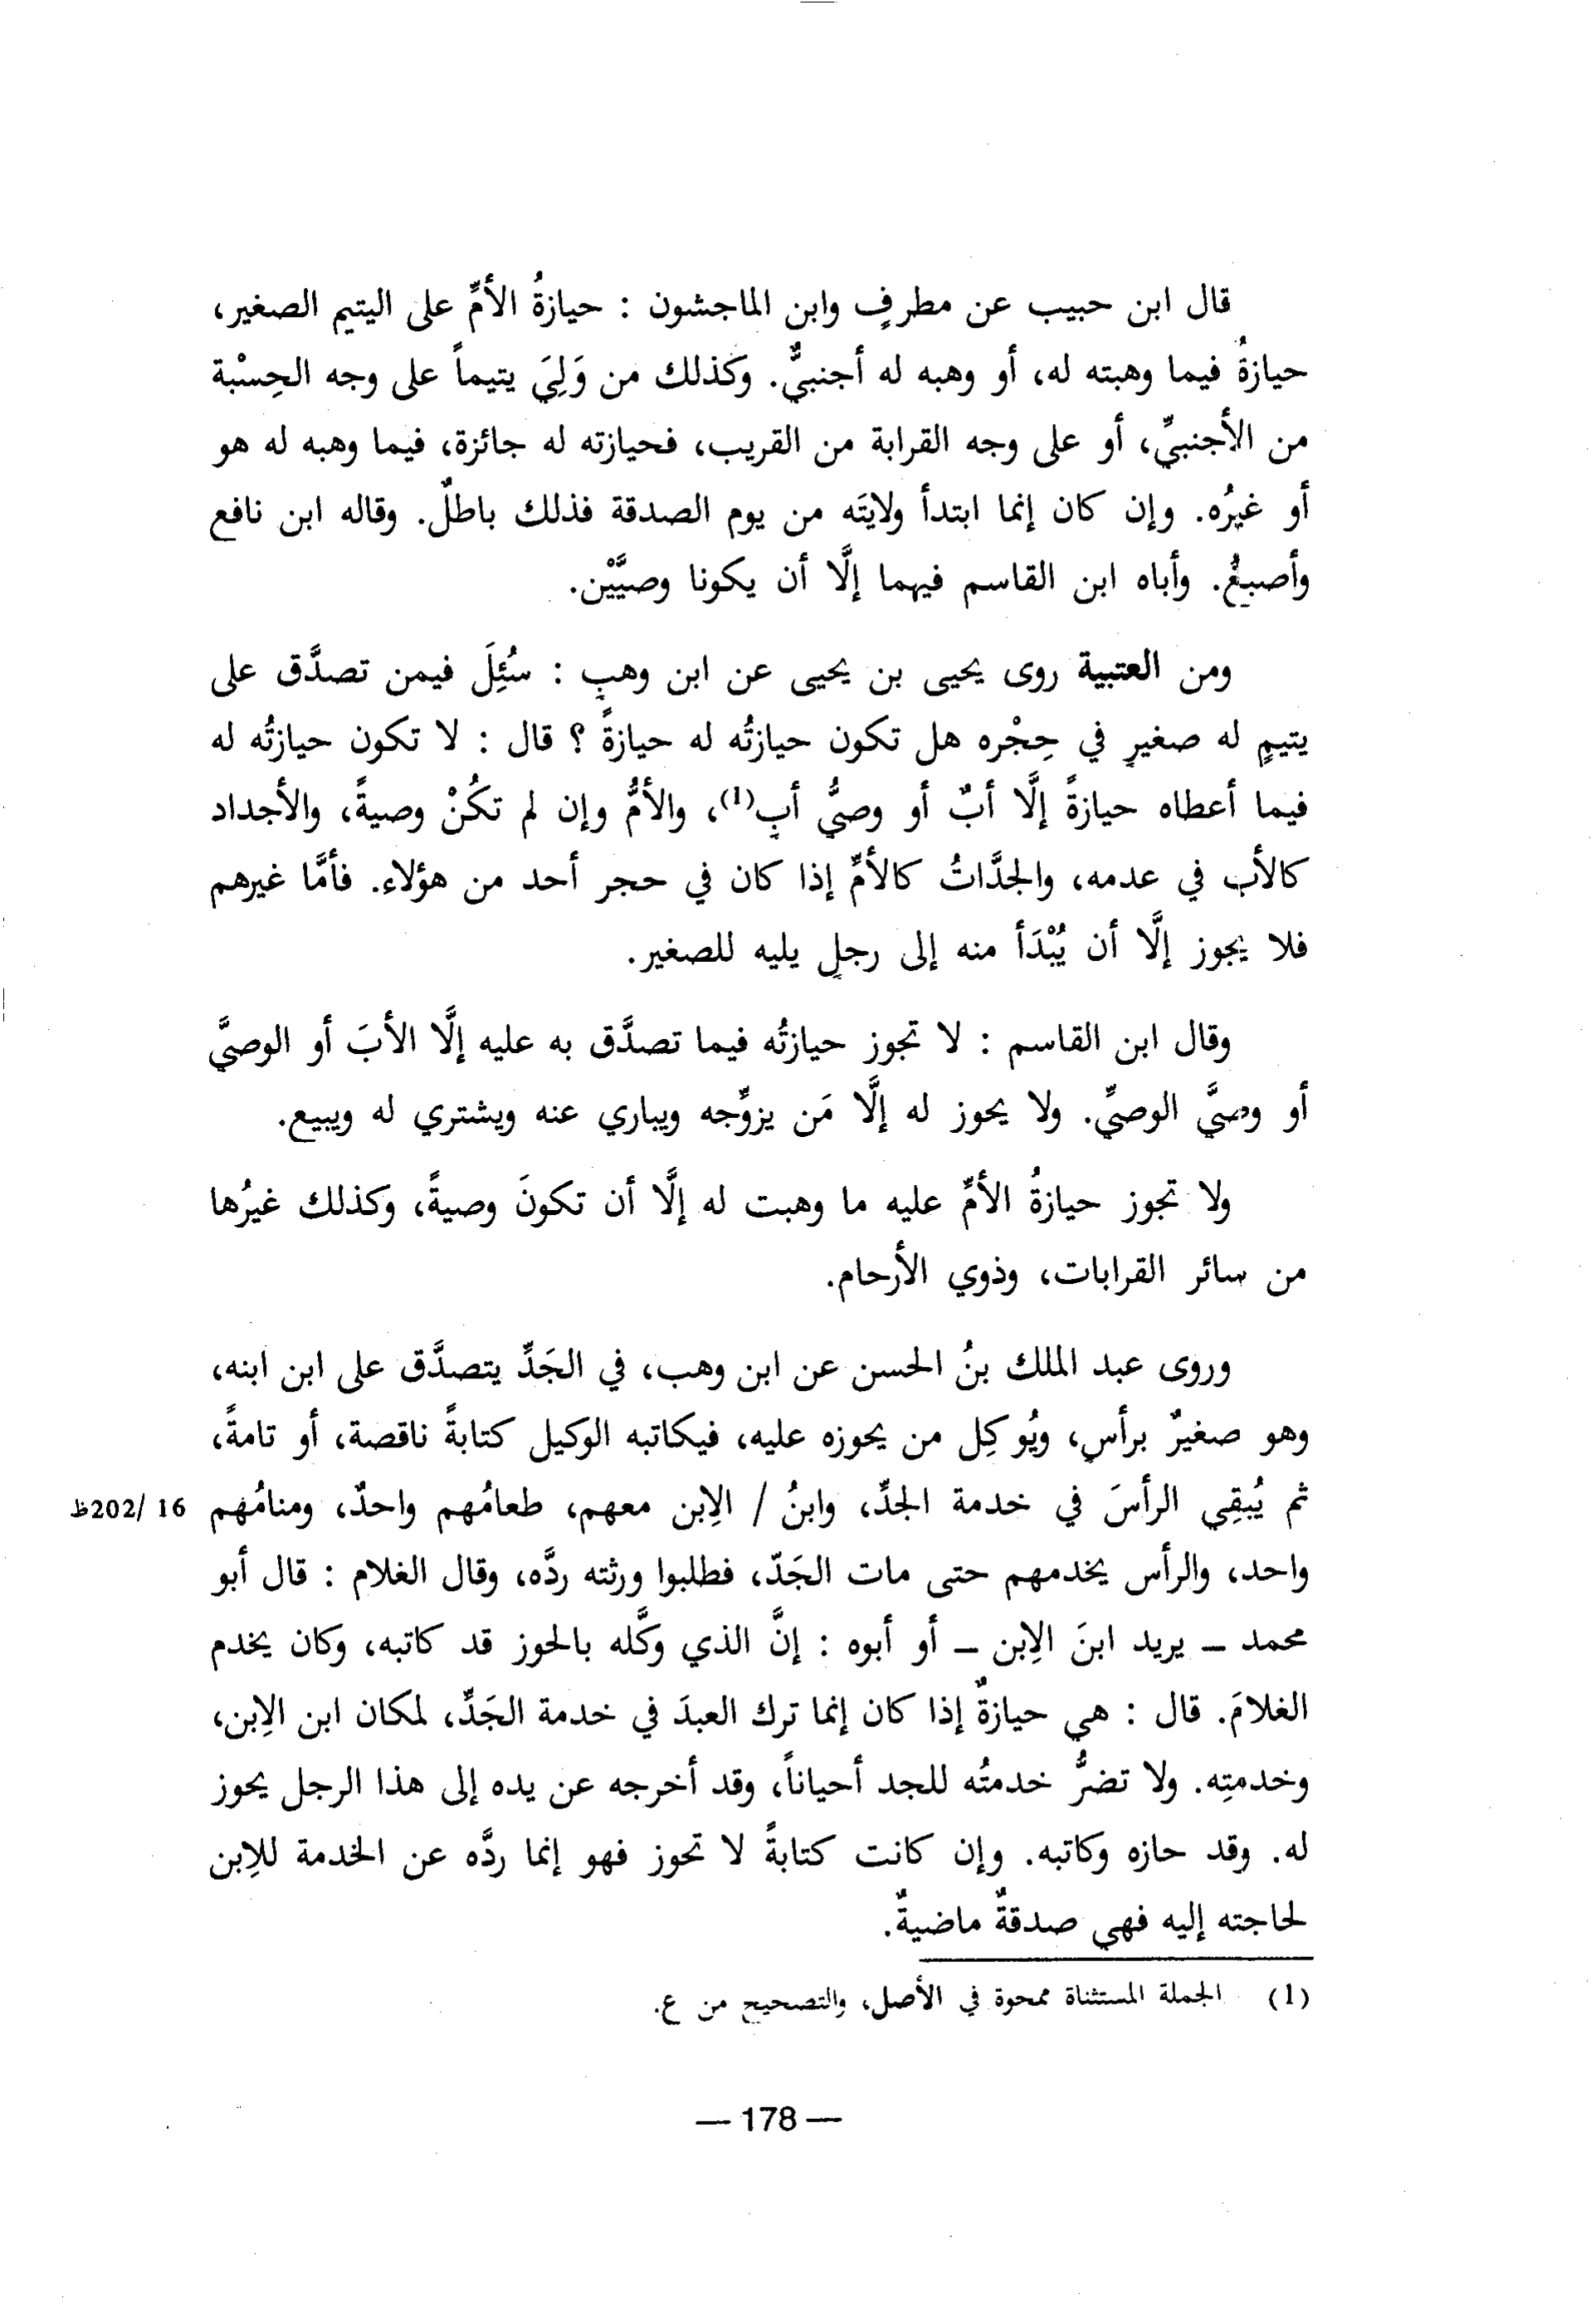 قال ابن حبيب عن مطرفٍ وابن الماجشون : حيازةُ الأمِّ على اليتيم الصغير،
حيازةُ فيما وهبته له، أو وهبه له أجنبيٌّ. وكذلك من وَلِيَ يتيماً على وجه الحِسْبة
من الأجنبيِّ، أو على وجه القرابة من القريب، فحيازته له جائزة، فيما وهبه له هو
أو غيرُه. وإن كان إنما ابتدأ ولايتَه من يوم الصدقة فذلك باطلٌ. وقاله ابن نافع
وأصبغُ. وأباه ابن القاسم فيهما إلَّا أن يكونا وصيَّيْن.
ومن العتبية روى يحيى بن يحيى عن ابن وهبٍ : سُئِلَ فيمن تصدَّق على
يتيمٍ له صغيرٍ في حِجْره هل تكون حيازتُه له حيازةً ؟ قال : لا تكون حيازتُه له
فيما أعطاه حيازةً إلَّا أبٌ أو وصيُّ أبٍ(1)، والأمُّ وإن لم تكُنْ وصيةً، والأجداد
كالأب في عدمه، والجدَّاتُ كالأمِّ إذا كان في حجر أحد من هؤلاء. فأمَّا غيرهم
فلا يجوز إلَّا أن يُبْدَأ منه إلى رجلٍ يليه للصغير.
وقال ابن القاسم : لا تجوز حيازتُه فيما تصدَّق به عليه إلَّا الأبَ أو الوصيَّ
أو وصيَّ الوصيِّ. ولا يحوز له إلَّا مَن يزوِّجه ويباري عنه ويشتري له ويبيع.
ولا تجوز حيازةُ الأمِّ عليه ما وهبت له إلَّا أن تكونَ وصيةً، وكذلك غيرُها
من سائر القرابات، وذوي الأرحام.
وروى عبد الملك بنُ الحسن عن ابن وهب، في الجَدِّ يتصدَّق على ابن ابنه،
وهو صغيرٌ برأسٍ، ويُوكِل من يحوزه عليه، فيكاتبه الوكيل كتابةً ناقصة، أو تامةً،
ثم يُبقِي الرأسَ في خدمة الجدِّ، وابنُ / الاِبن معهم، طعامُهم واحدٌ، ومنامُهم 16 /202ظ
واحد، والرأس يخدمهم حتى مات الجَدّ، فطلبوا ورثته ردَّه، وقال الغلام : قال أبو
محمد – يريد ابنَ الاِبن – أو أبوه : إنَّ الذي وكَّله بالحوز قد كاتبه، وكان يخدم
الغلامَ. قال : هي حيازةٌ إذا كان إنما ترك العبدَ في خدمة الجَدِّ، لمكان ابن الاِبن،
وخدمتِه. ولا تضرُّ خدمتُه للجد أحياناً، وقد أخرجه عن يده إلى هذا الرجل يحوز
له. وقد حازه وكاتبه. وإن كانت كتابةً لا تحوز فهو إنما ردَّه عن الخدمة للاِبن
لحاجته إليه فهي صدقةٌ ماضيةٌ.
(1) الجملة المستثناة ممحوة في الأصل، والتصحيح من ع.
— 178 —